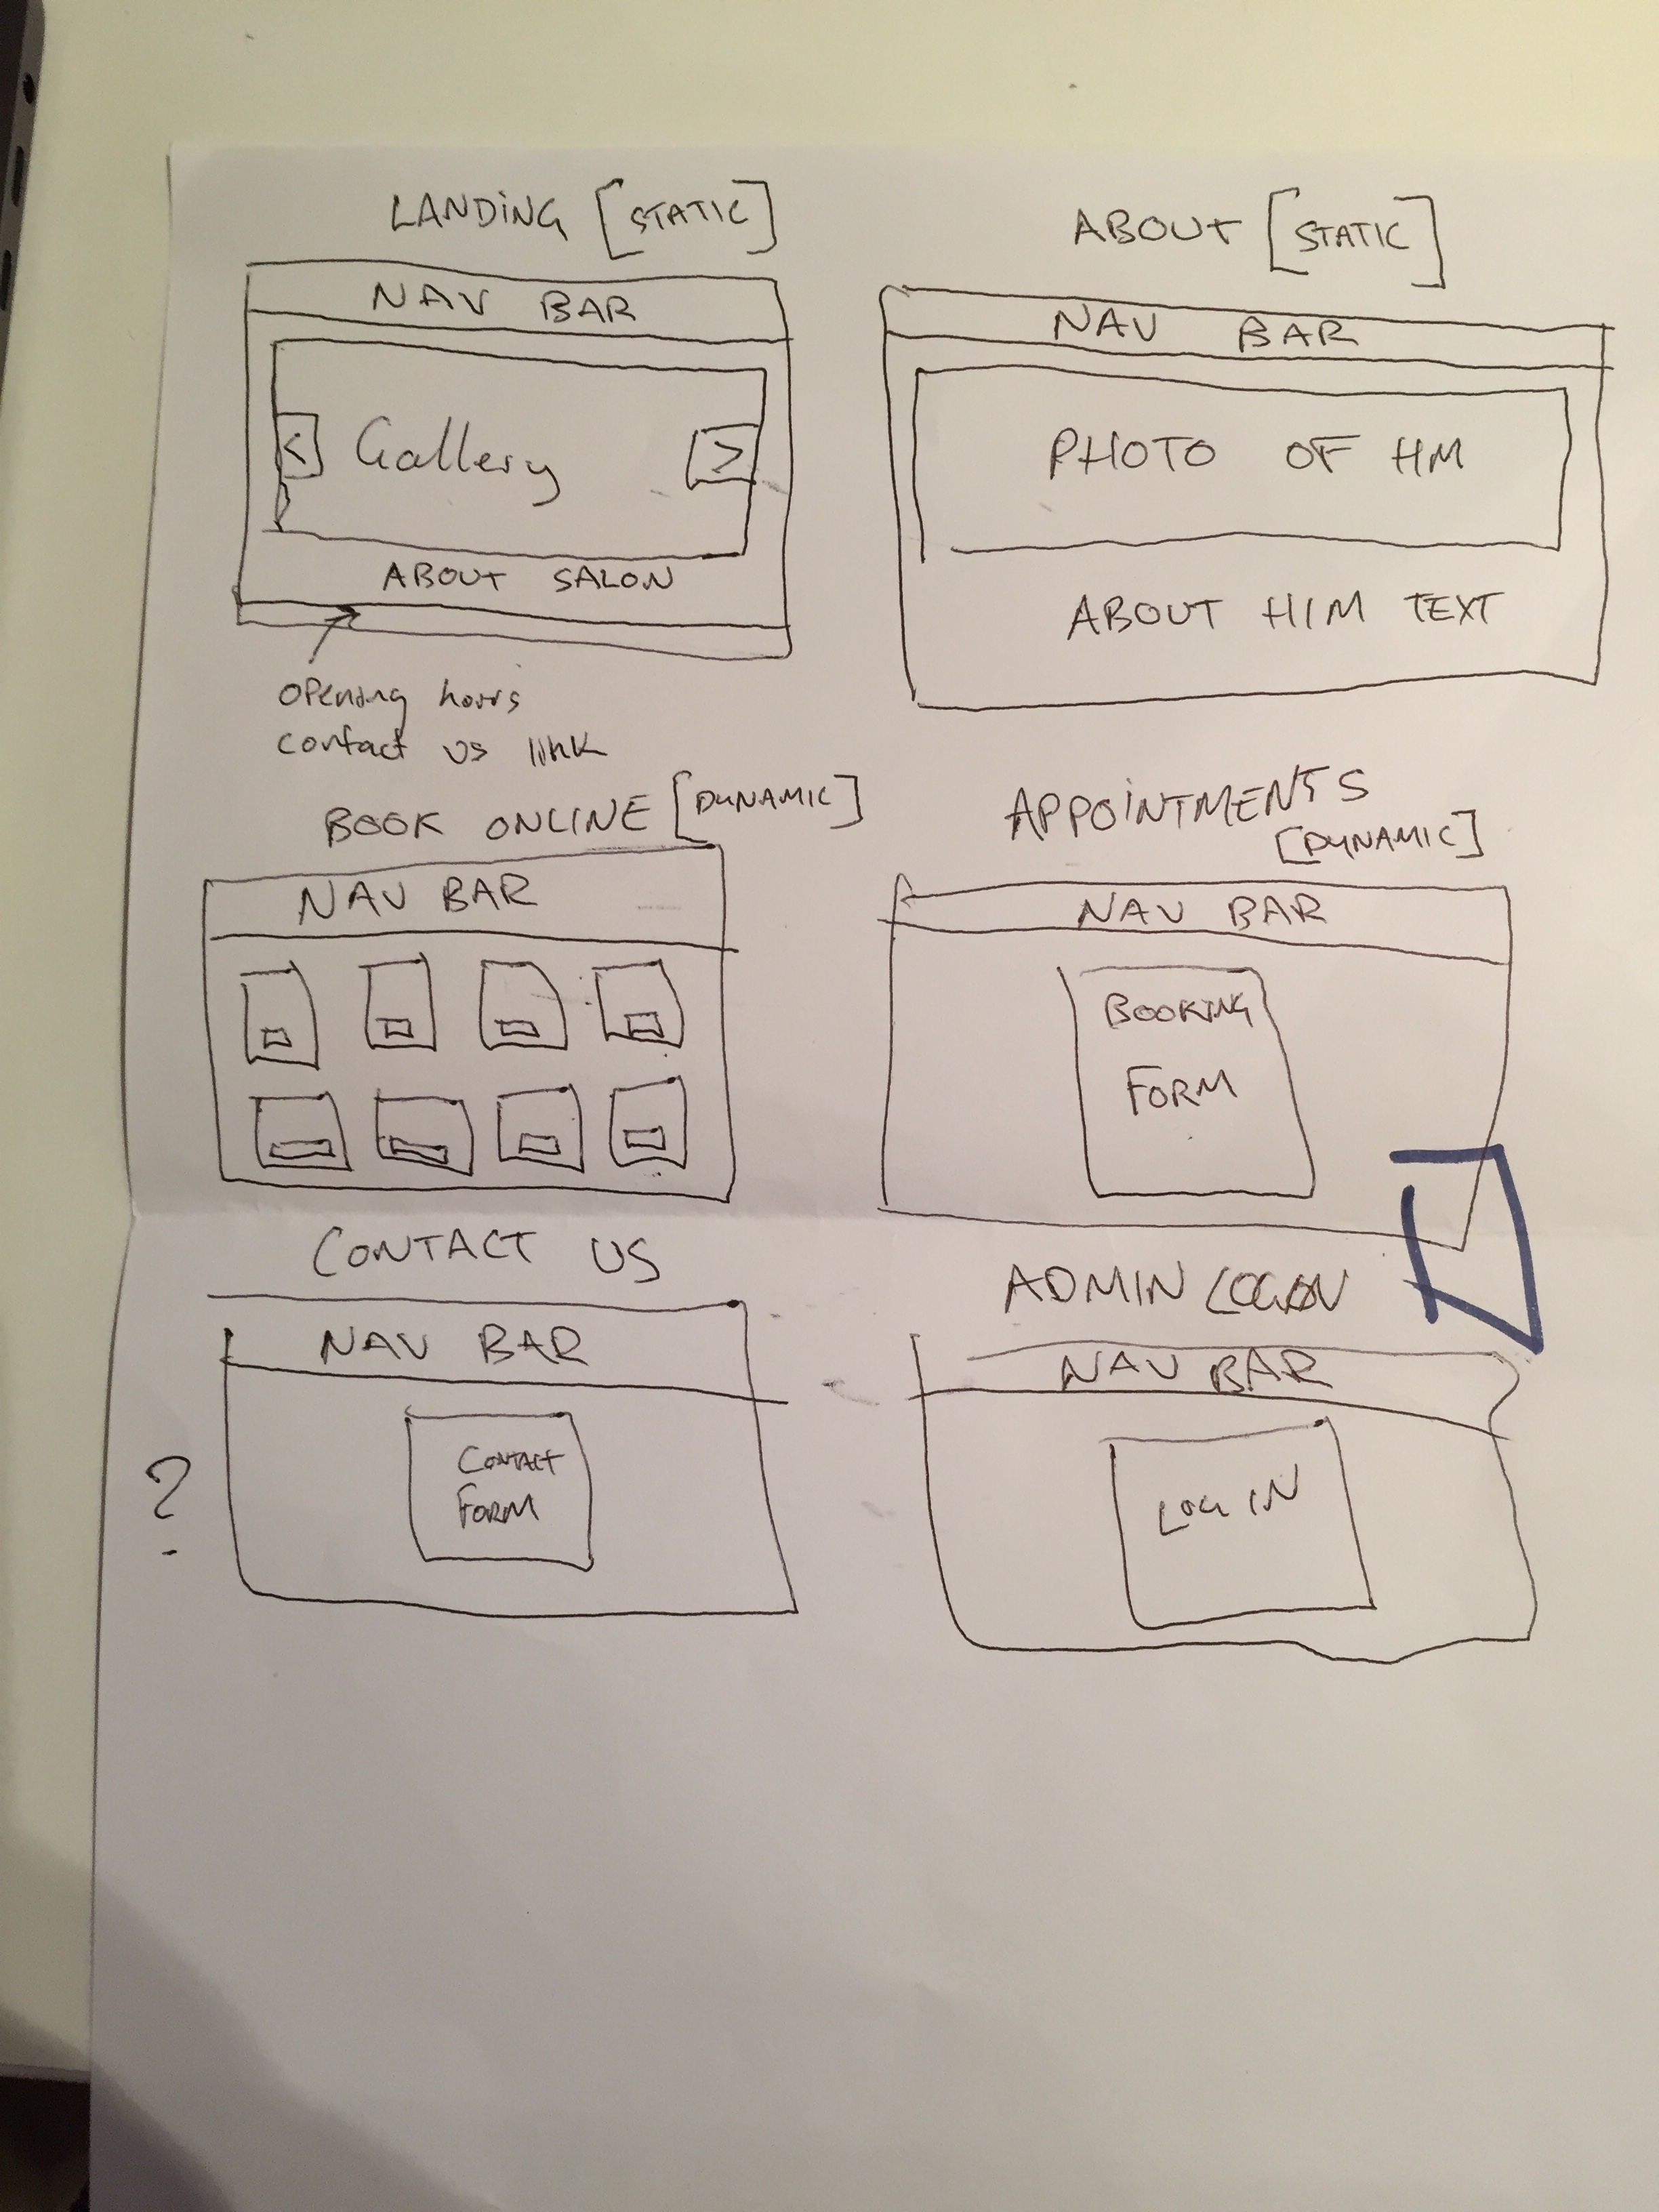 LANDING [STATIC]
NAV BAR
< Gallery >
ABOUT SALON
Opening hours
contact us link
ABOUT [STATIC]
NAV BAR
PHOTO OF HM
ABOUT HIM TEXT
BOOK ONLINE [DYNAMIC]
NAV BAR
APPOINTMENTS
[DYNAMIC]
NAV BAR
BOOKING
FORM
CONTACT US
NAV BAR
CONTACT
FORM
?
ADMIN LOGON
NAV BAR
LOG IN